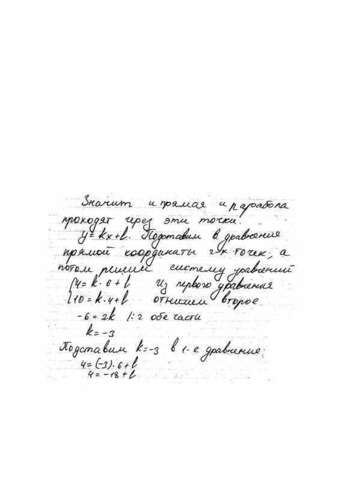 Значит и прямая и парабола
проходят через эти точки.
y = kx + b. Подставим в уравнения
прямой координаты 2-х точек, а
потом решим систему уравнений
{4 = k · 6 + b Из первого уравнения
{10 = k · 4 + b отнимем второе.
-6 = 2k |:2 обе части
k = -3
Подставим k = -3 в 1-е уравнение:
4 = (-3) · 6 + b
4 = -18 + b